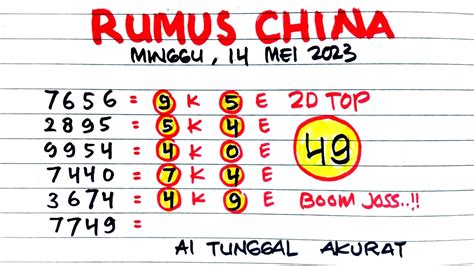 RUMUS CHINA
MINGGU, 14 MEI 2023
7656 = 9 K 5 E 2D TOP
2895 = 5 K 4 E
9954 = 4 K 0 E 49
7440 = 7 K 4 E
3674 = 4 K 9 E BOOM JOSS..!!
7749 =
AI TUNGGAL AKURAT